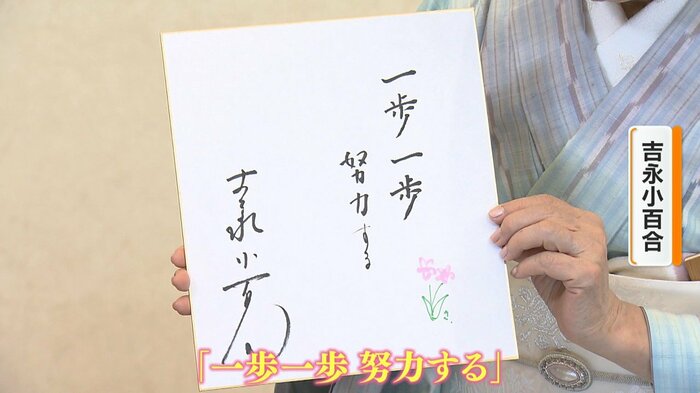 一歩一歩
努力する
吉永小百合
吉永小百合
「一歩一歩 努力する」